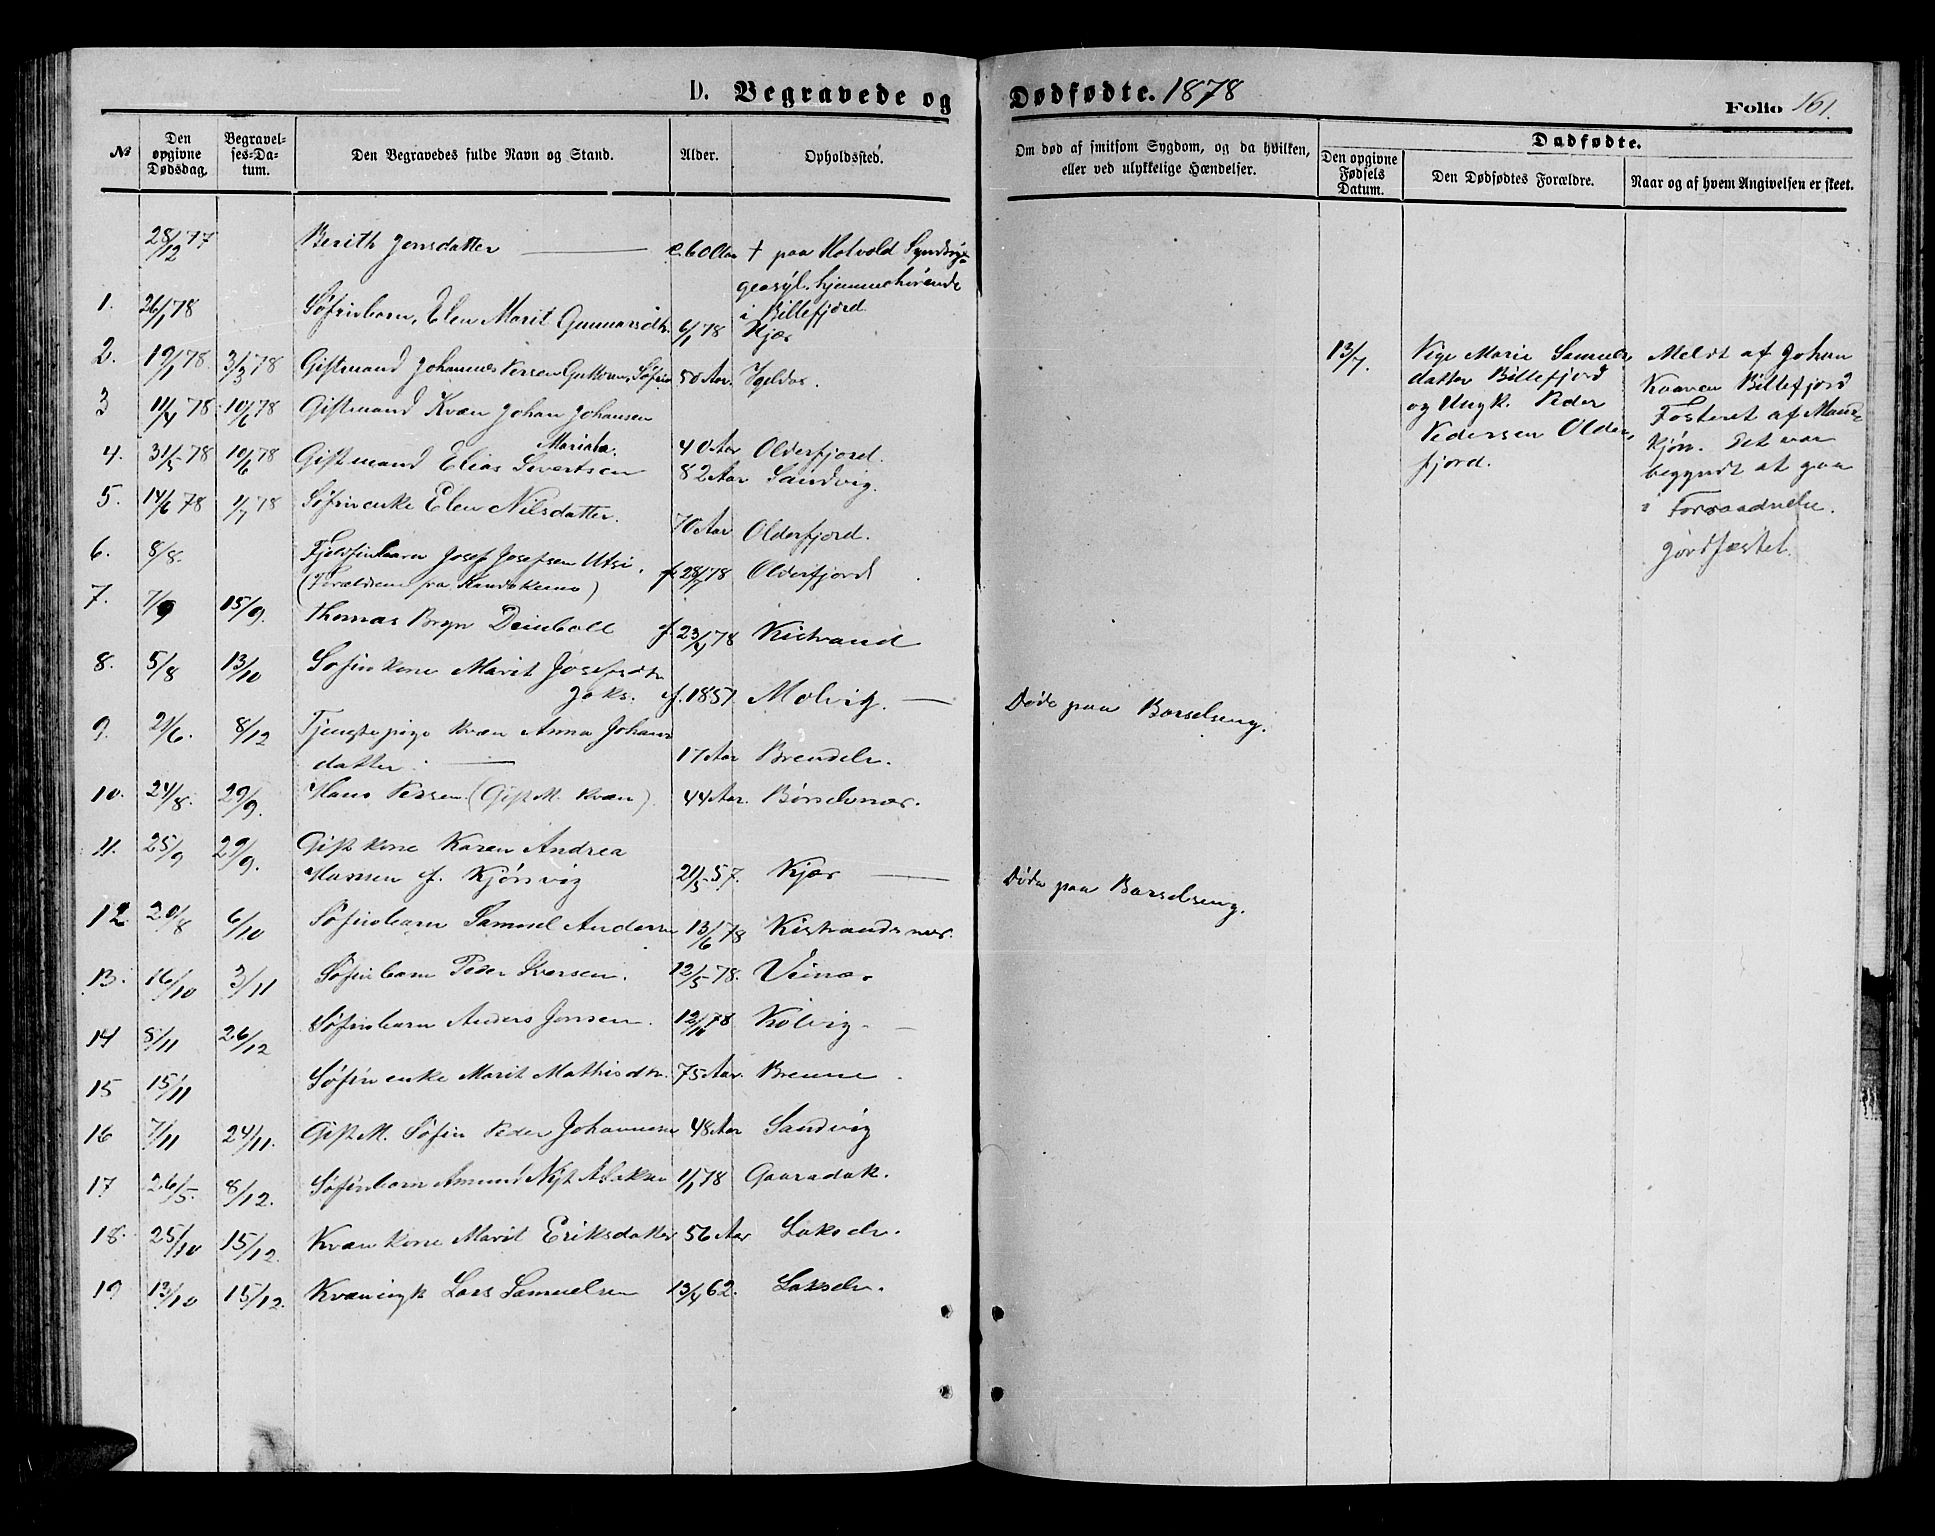 D. Begravede og Dødfødte. 1878
Folio 161.
No
Den opgivne Dødsdag.
Begravelses-Datum.
Den Begravedes fulde Navn og Stand.
Alder.
Opholdssted.
Om død af smitsom Sygdom, og da hvilken,
eller ved ulykkelige Hændelser.
Dødfødte.
Den opgivne Fødsels Datum.
Den Dødfødtes Forældre.
Naar og af hvem Angivelsen er skeet.
28/12 77 Berith Jonsdatter c. 60 Aar † paa Rotvold
hjemmehørende
i Billefjord
1. 26/1 78 Søfinbarn, Elen Marit Gunnarsdtr. 6/1 78 Kjær
2. 19/1 78 3/3 78 Giftmand Johannes Persen Guttorm, Søfin 50 Aar. Ygeldas.
3 11/4 78 10/6 78 Giftmand Kvæn Johan Johansen
Mariala. 40 Aar Olderfjord.
4. 31/5 78 10/6 78 Giftmand Elias Sivertsen 82 Aar Sandvig.
5. 14/6 78 1/7 78 Søfinenke Elen Nilsdatter. 70 Aar Olderfjord.
6. 8/8. Fjeldfinbarn Josef Josefsen Utsi. f. 28/7 78 Olderfjord
(Forældrene fra Kautokeino)
7. 7/9 15/9. Thomas Bryn Deinboll f. 23/4 78 Kistrand
8. 5/8 13/10 Søfinkone Marit Josefsdtr.
Joks. f. 1851. Molvig. Døde paa Barselseng.
9. 21/6. 8/12 Tjenestepige Kvæn Anna Johans
datter. 17 Aar Brendelv.
10. 24/8. 29/9. Hans Persen (Gift M. Kvæn). 44 Aar. Børselvnæs.
11. 25/9 29/9. Gift Kone Karen Andrea
Hansen f. Kjørsvig 21/5 57. Kjær Døde paa Barselseng.
12. 20/8 6/10 Søfinbarn Samuel Andersen 13/6 78 Kistrandsnæs.
13. 16/10 3/11 Søfinbarn Peder Iversen. 12/5 78. Veinæs
14 8/11 26/12 Søfinbarn Anders Jonsen. 12/10 78 Kolvig.
15 15/11 Søfin enke Marit Mathisdtr. 75 Aar. Brenne.
16 7/11 24/11. Gift M. Søfin Peder Johannesen 48 Aar Sandvig
17 26/5. 8/12. Søfinbarn Amund Aslaksen 1/1 78 Gaaradak.
18. 25/10 15/12. Kvæn Kone Marit Eriksdatter 56 Aar Lakselv.
19 13/10 15/12. Kvæn Lars Samuelsen 13/4 62. Lakselv.
13/7. Pige Marie Samuels
datter Billefjord
og Ungk. Peder
Pedersen Older
fjord.
Meldt af Johan
Billefjord
Fosteret af Mand-
kjøn. Det var
begyndt at gaa
i Forraadnelse.
jordfæstet.